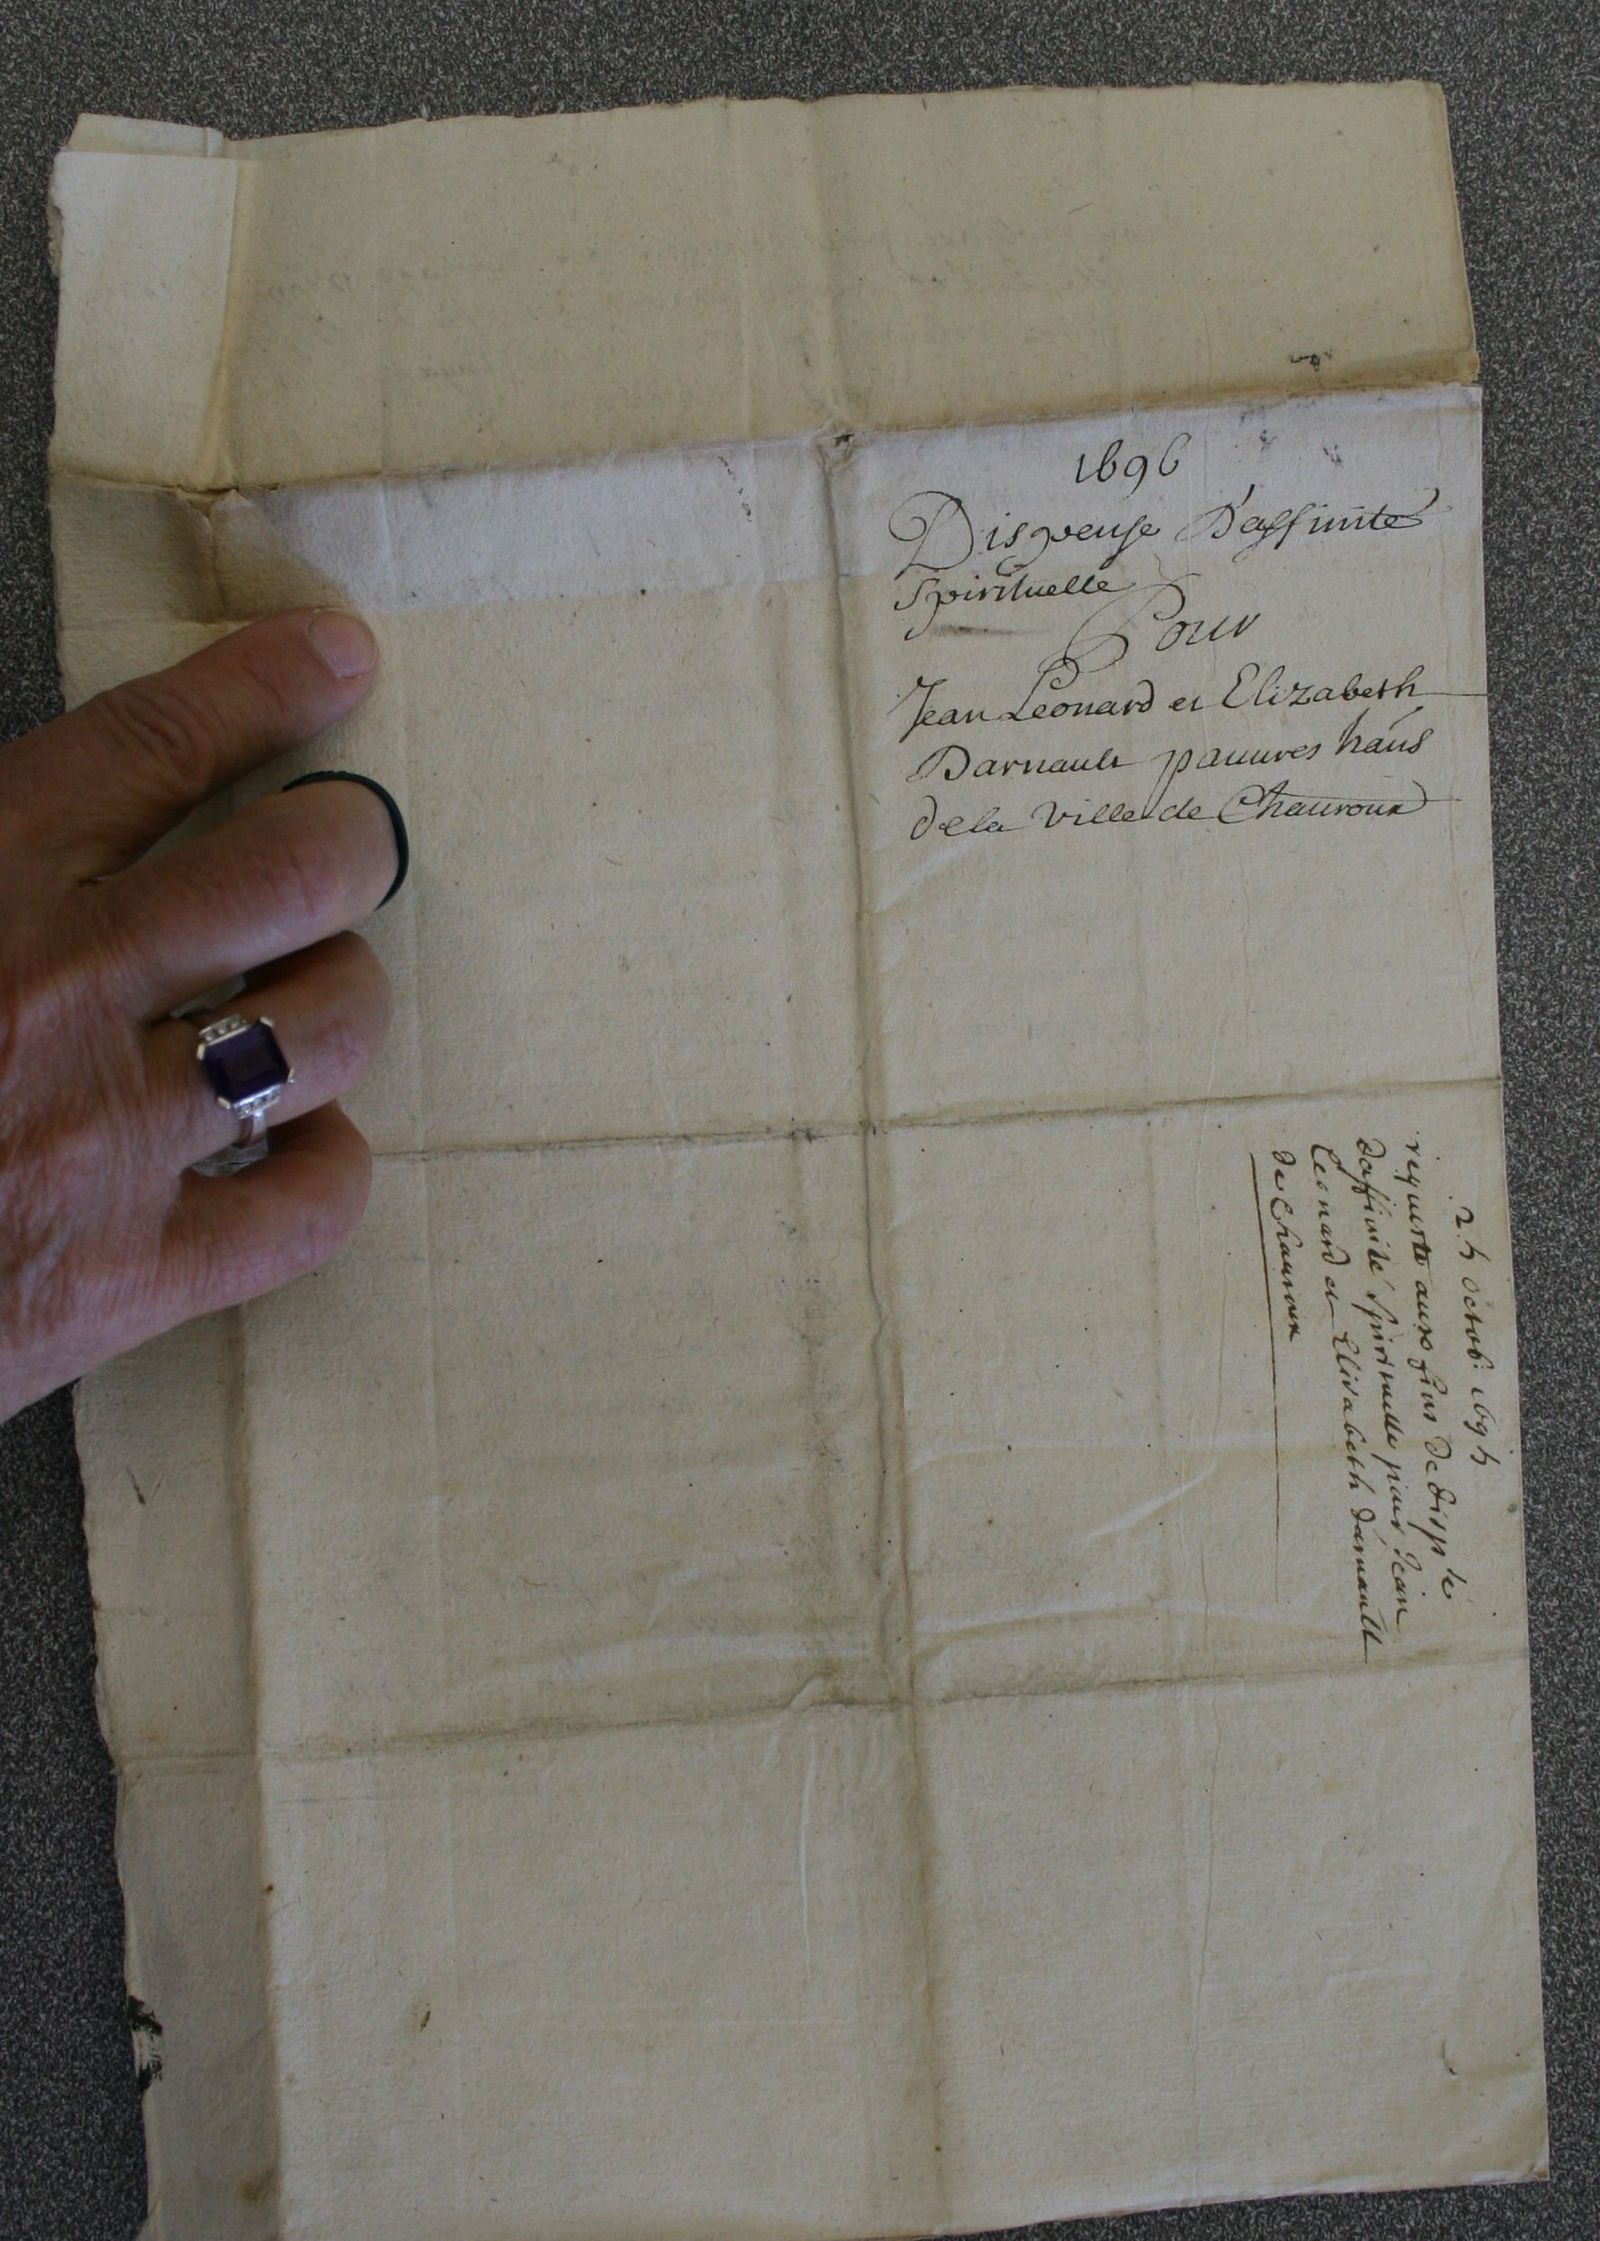 1696
Dispense D'affinité
Spirituelle
Pour
Jean Leonard et Elizabeth
Darnault pauures hãns
de la Ville de Chauroux
25 octob: 1695
requeste aux fins de dispse
daffinité spirituelle pour Jean
Leonard et Elisabeth darnault
de Chauroux